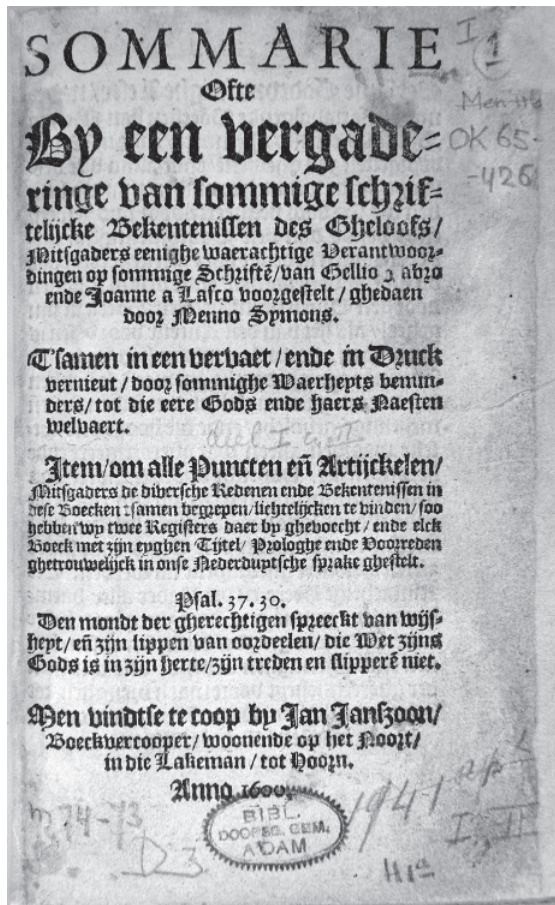 SOMMARIE
I
1
Ofte
Men
By een vergade-
OK 65-
ringe van sommige schrif-
-426
telijcke Bekentenissen des Gheloofs/
Mitsgaders eenighe waerachtige Verantwoor-
dingen op sommige Schriftē/van Gellio Fabro
ende Joanne a Lasco voorgestelt/ghedaen
door Menno Symons.
T'samen in een vervaet/ende in Druck
vernieut/door sommighe Waerheyts bemin-
ders/tot die eere Gods ende haers Naesten
welvaert.
deel I
Item/om alle Puncten eñ Artijckelen/
Mitsgaders de diversche Redenen ende Bekentenissen in
dese Boecken tsamen begrepen/lichtelijcken te vinden/soo
hebben wy twee Registers daer by ghevoecht/ende elck
Boeck met zijn eyghen Tijtel/Prologhe ende Voorreden
ghetrouwelijck in onse Nederduytsche sprake ghestelt.
Psal. 37. 30.
Den mondt der gherechtigen spreeckt van wijs-
heyt/eñ zijn lippen van oordeelen/die Wet zijns
Gods is in zijn herte/zijn treden en slipperē niet.
Men vindtse te coop by Jan Janszoon/
Boeckvercooper/woonende op het Noort/
in die Lakeman/tot Hoorn.
Anno 1600.
74-73
D3
BIBL.
DOOPSG. GEM.
A'DAM
1941
I, II